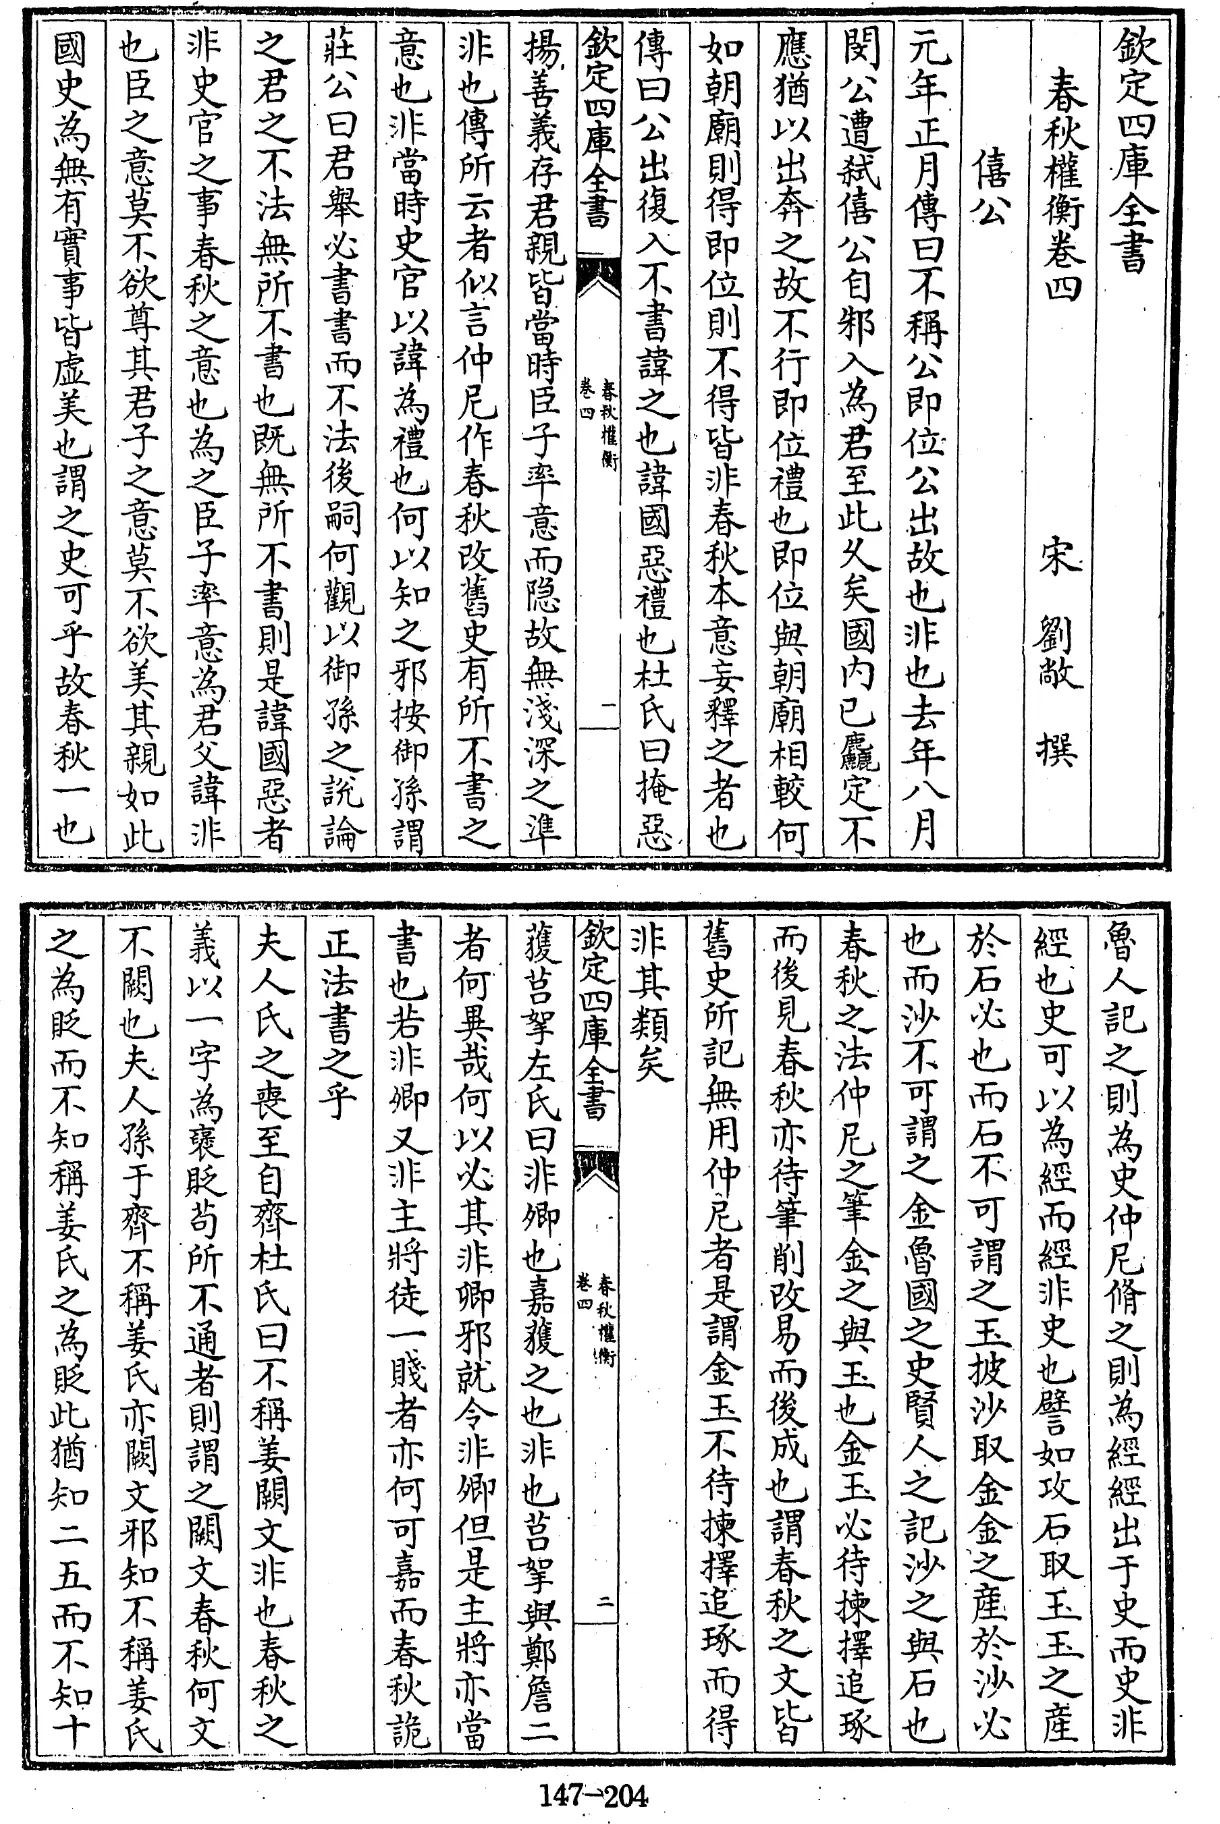 欽定四庫全書
春秋權衡卷四
宋 劉敞 撰
僖公
元年正月傳曰不稱公即位公出故也非也去年八月
閔公遭弑僖公自邾入為君至此久矣國内已麤定不
應猶以出奔之故不行即位禮也即位與朝廟相較何
如朝廟則得即位則不得皆非春秋本意妄釋之者也
傳曰公出復入不書諱之也諱國惡禮也杜氏曰掩惡
欽定四庫全書
春秋權衡
卷四
一
揚善義存君親皆當時臣子率意而隐故無淺深之準
非也傳所云者似言仲尼作春秋改舊史有所不書之
意也非當時史官以諱為禮也何以知之邪按御孫謂
莊公曰君舉必書書而不法後嗣何觀以御孫之說論
之君之不法無所不書也既無所不書則是諱國惡者
非史官之事春秋之意也為之臣子率意為君父諱非
也臣之意莫不欲尊其君子之意莫不欲美其親如此
國史為無有實事皆虚美也謂之史可乎故春秋一也
魯人記之則為史仲尼脩之則為經經出于史而史非
經也史可以為經而經非史也譬如攻石取玉玉之產
於石必也而石不可謂之玉披沙取金金之産於沙必
也而沙不可謂之金魯國之史賢人之記沙之與石也
春秋之法仲尼之筆金之與玉也金玉必待揀擇追琢
而後見春秋亦待筆削改易而後成也謂春秋之文皆
舊史所記無用仲尼者是謂金玉不待揀擇追琢而得
非其類矣
欽定四庫全書
春秋權衡
卷四
二
獲莒挐左氏曰非卿也嘉獲之也非也莒挐與鄭詹二
者何異哉何以必其非卿邪就令非卿但是主將亦當
書也若非卿又非主將徒一賤者亦何可嘉而春秋詭
正法書之乎
夫人氏之喪至自齊杜氏曰不稱姜闕文非也春秋之
義以一字為襃貶苟所不通者則謂之闕文春秋何文
不闕也夫人孫于齊不稱姜氏亦闕文邪知不稱姜氏
之為貶而不知稱姜氏之為貶此猶知二五而不知十
147-204